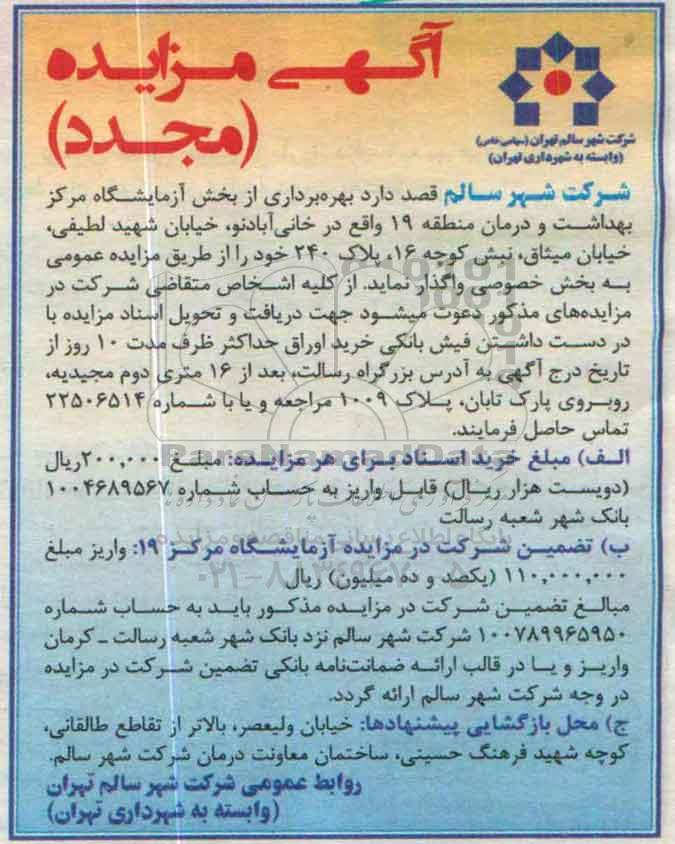 آگهی مزایده
(مجدد)
شرکت شهر سالم تهران (سهامی خاص)
(وابسته به شهرداری تهران)
شرکت شهر سالم قصد دارد بهره‌برداری از بخش آزمایشگاه مرکز
بهداشت و درمان منطقه ۱۹ واقع در خانی‌آبادنو، خیابان شهید لطیفی،
خیابان میثاق، نبش کوچه ۱۶، پلاک ۲۴۰ خود را از طریق مزایده عمومی
به بخش خصوصی واگذار نماید. از کلیه اشخاص متقاضی شرکت در
مزایده‌های مذکور دعوت میشود جهت دریافت و تحویل اسناد مزایده با
در دست داشتن فیش بانکی خرید اوراق حداکثر ظرف مدت ۱۰ روز از
تاریخ درج آگهی به آدرس بزرگراه رسالت، بعد از ۱۶ متری دوم مجیدیه،
روبروی پارک تابان، پلاک ۱۰۰۹ مراجعه و یا با شماره ۲۲۵۰۶۵۱۴
تماس حاصل فرمایند.
الف) مبلغ خرید اسناد برای هر مزایده: مبلغ ۲۰۰,۰۰۰ریال
(دویست هزار ریال) قابل واریز به حساب شماره ۱۰۰۴۶۸۹۵۶۷
بانک شهر شعبه رسالت
ب) تضمین شرکت در مزایده آزمایشگاه مرکز ۱۹: واریز مبلغ
۱۱۰,۰۰۰,۰۰۰ (یکصد و ده میلیون) ریال
مبالغ تضمین شرکت در مزایده مذکور باید به حساب شماره
۱۰۰۷۸۹۹۶۵۹۵۰ شرکت شهر سالم نزد بانک شهر شعبه رسالت ـ کرمان
واریز و یا در قالب ارائه ضمانت‌نامه بانکی تضمین شرکت در مزایده
در وجه شرکت شهر سالم ارائه گردد.
ج) محل بازگشایی پیشنهادها: خیابان ولیعصر، بالاتر از تقاطع طالقانی،
کوچه شهید فرهنگ حسینی، ساختمان معاونت درمان شرکت شهر سالم.
روابط عمومی شرکت شهر سالم تهران
(وابسته به شهرداری تهران)
ParsNamadData
پایگاه اطلاع رسانی مناقصه و مزایده